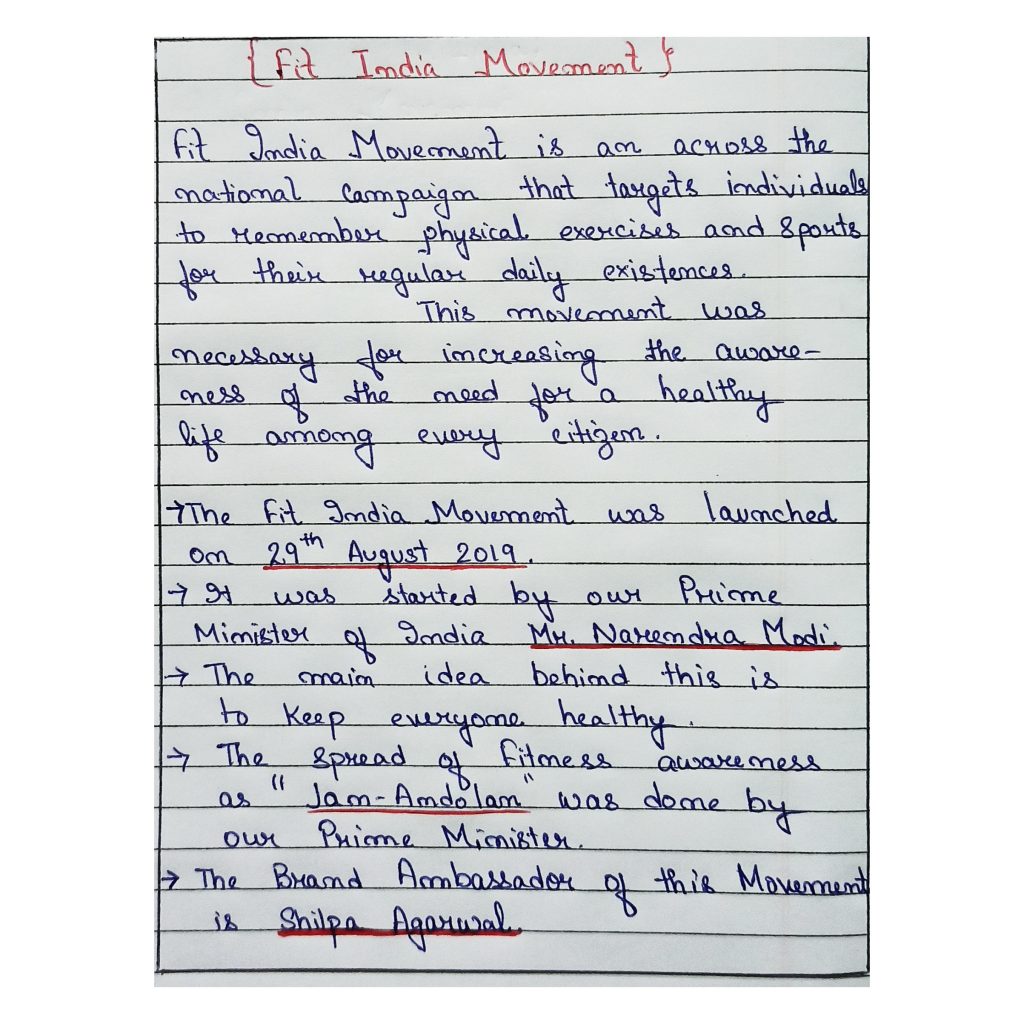 { Fit India Movement }
Fit India Movement is an across the
national Campaign that targets individuals
to remember physical exercises and Sports
for their regular daily existences.
This movement was
necessary for increasing the aware-
ness of the need for a healthy
life among every citizen.
→ The Fit India Movement was launched
on 29th August 2019.
→ It was started by our Prime
Minister of India Mr. Narendra Modi.
→ The main idea behind this is
to Keep everyone healthy.
→ The Spread of Fitness awareness
as "Jan-Andolan" was done by
our Prime Minister.
→ The Brand Ambassador of this Movement
is Shilpa Agarwal.